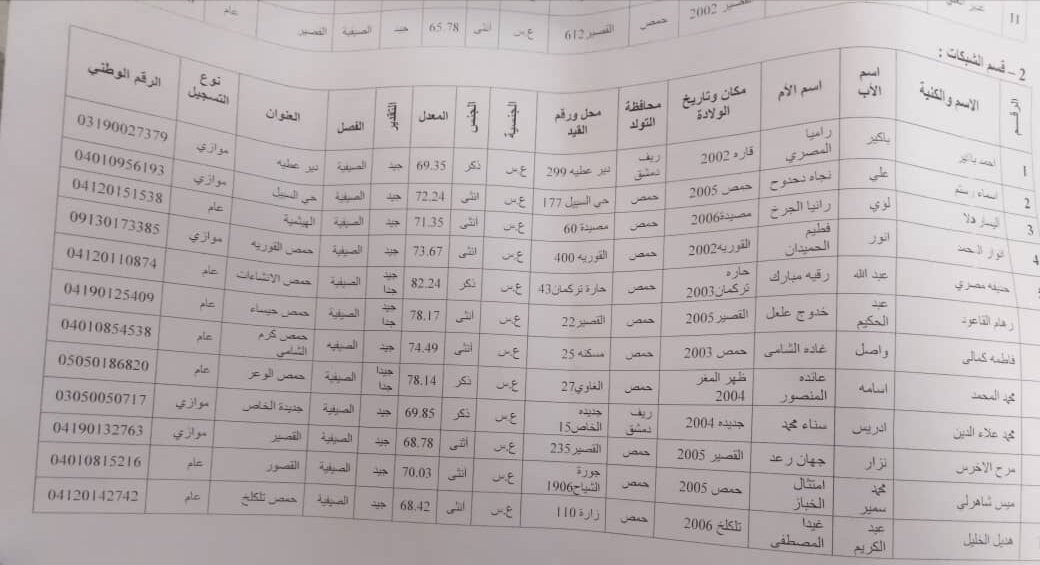 11 القصير 2002 حمص القصير612 ع.س انثى 65.78 جيد الصيفية القصير عام
2 – قسم الشبكات :
الرقم الاسم والكنية اسم الأب اسم الأم مكان وتاريخ الولادة محافظة التولد محل ورقم القيد الجنسية الجنس المعدل التقدير الفصل العنوان نوع التسجيل الرقم الوطني
1 احمد باكير باكير راميا المصري قاره 2002 ريف دمشق دير عطيه 299 ع.س ذكر 69.35 جيد الصيفية دير عطيه موازي 03190027379
2 اسماء رستم علي نجاه دحدوح حمص 2005 حمص حي السبيل 177 ع.س انثى 72.24 جيد الصيفية حي السبيل موازي 04010956193
3 اليسار هلا لؤي رانيا الجرخ مصيدة2006 حمص مصيدة 60 ع.س انثى 71.35 جيد الصيفية الهيثمية عام 04120151538
4 انوار الحمد انور فطيم الحميدان القوريه2002 حمص القوريه 400 ع.س انثى 73.67 جيد الصيفية حمص القوريه موازي 09130173385
حنيفه مصري عبد الله رقيه مبارك حاره تركمان2003 حمص حارة تركمان43 ع.س ذكر 82.24 جيد جدا الصيفية حمص الانشاءات عام 04120110874
رهام القاعود عبد الحكيم خدوج علعل القصير 2005 حمص القصير22 ع.س انثى 78.17 جيد جدا الصيفية حمص حيساء عام 04190125409
فاطمه كمالي واصل غاده الشامي حمص 2003 حمص مسكنه 25 ع.س انثى 74.49 جيد الصيفيه حمص كرم الشامي عام 04010854538
محمد المحمد اسامه عائده المنصور ظهر المغر 2004 حمص الغاوي27 ع.س ذكر 78.14 جيدا جدا الصيفية حمص الوعر عام 05050186820
محمد علاء الدين ادريس سناء محمد جديده 2004 ريف دمشق جديده الخاص15 ع.س ذكر 69.85 جيد الصيفية جديدة الخاص موازي 03050050717
مرح الاخرس نزار جهان رعد القصير 2005 حمص القصير235 ع.س أنثى 68.78 جيد الصيفية القصير موازي 04190132763
ميس شاهرلي محمد سمير امتثال الخباز حمص 2005 حمص جورة الشياح1906 ع.س انثى 70.03 جيد الصيفية القصور عام 04010815216
هديل الخليل عبد الكريم غيدا المصطفى تلكلخ 2006 حمص زارة 110 ع.س انثى 68.42 جيد الصيفية حمص تلكلخ عام 04120142742